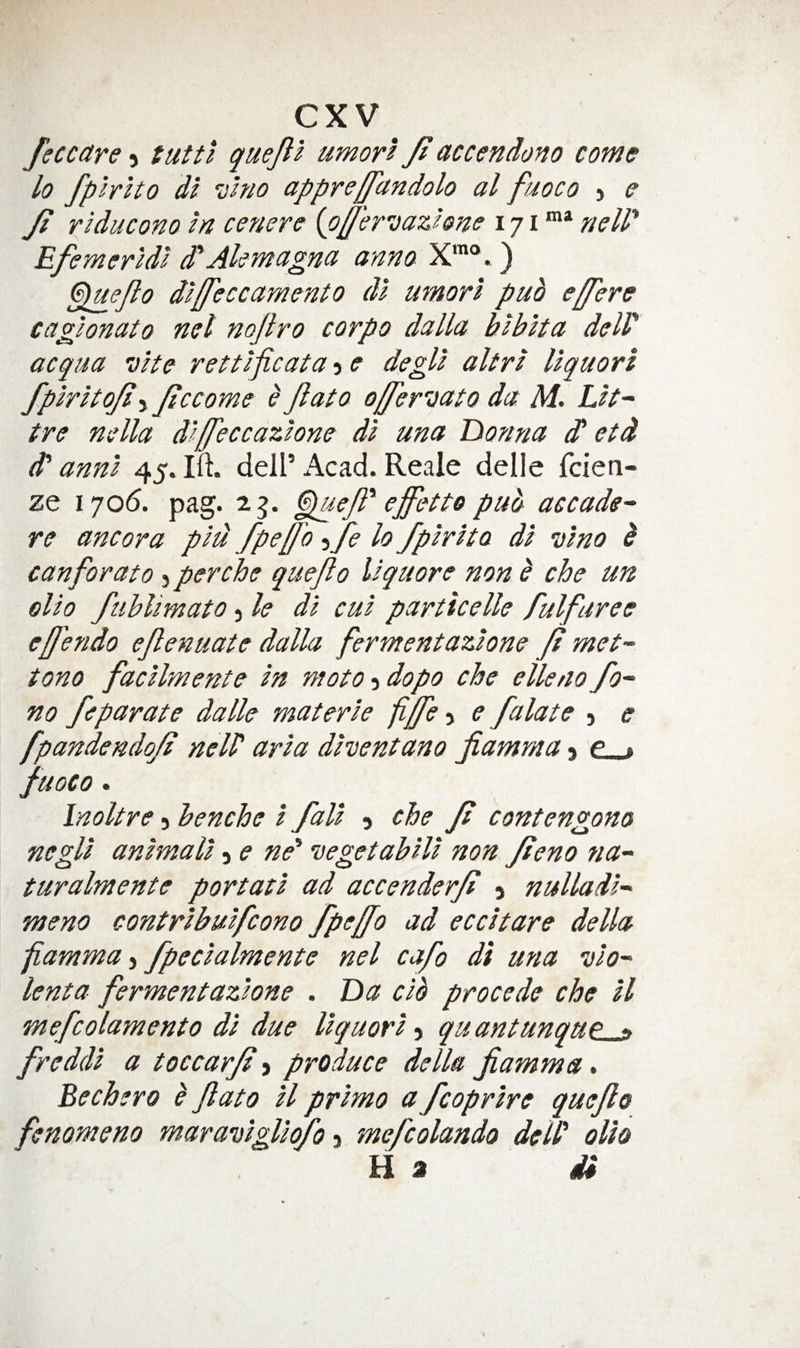 CXV
ſeccare, tutti queſti umori ſi accendono come
lo ſpirito di vino appreſſandolo al fuoco, e
ſi riducono in cenere (oſſervazione 171ma nell'
Efemeridi d'Alemagna anno Xmo.)
Queſto diſſeccamento di umori può eſſere
cagionato nel noſtro corpo dalla bibita dell'
acqua vite rettificata, e degli altri liquori
ſpiritoſi, ſiccome è ſtato oſſervato da M. Lit-
tre nella diſſeccazione di una Donna d' età
d' anni 45. Iſt. dell' Acad. Reale delle ſcien-
ze 1706. pag. 23. Queſt' effetto può accade-
re ancora più ſpeſſo, ſe lo ſpirito di vino è
canforato, perche queſto liquore non è che un
olio ſublimato, le di cui particelle ſulfuree
eſſendo eſtenuate dalla fermentazione ſi met-
tono facilmente in moto, dopo che elleno ſo-
no ſeparate dalle materie fiſſe, e ſalate, e
ſpandendoſi nell' aria diventano fiamma, e
fuoco.
Inoltre, benche i ſali, che ſi contengono
negli animali, e ne' vegetabili non ſieno na-
turalmente portati ad accenderſi, nulladi-
meno contribuiſcono ſpeſſo ad eccitare della
fiamma, ſpecialmente nel caſo di una vio-
lenta fermentazione. Da ciò procede che il
meſcolamento di due liquori, quantunque
freddi a toccarſi, produce della fiamma.
Bechero è ſtato il primo a ſcoprire queſto
fenomeno maraviglioſo, meſcolando dell' olio
H 2 di